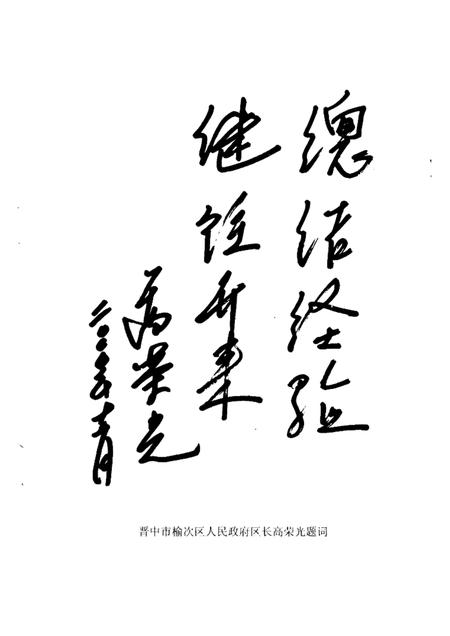 總结经验
继往开来
高荣光
二〇〇年月
晋中市榆次区人民政府区长高荣光题词